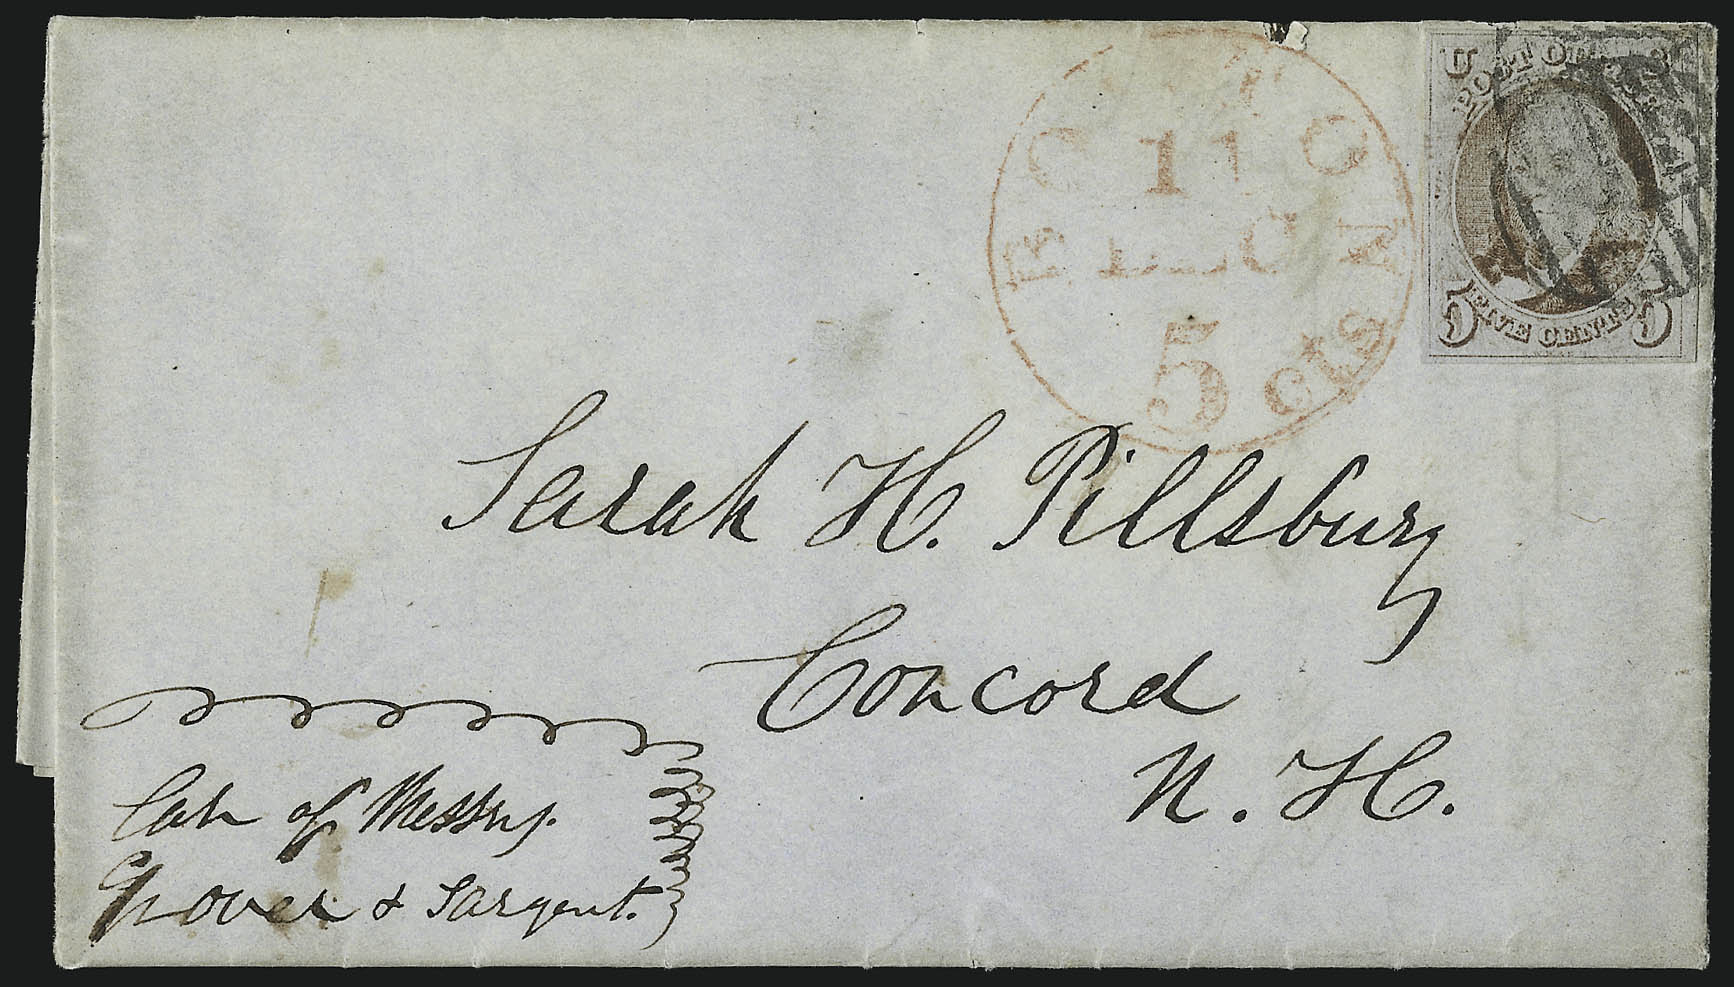 BOSTON
11
DEC
5 cts
U S
POST OFFICE
5 FIVE CENTS 5
Sarah H. Pillsbury
Concord
N. H.
Care of Messrs.
Grover & Sargent.